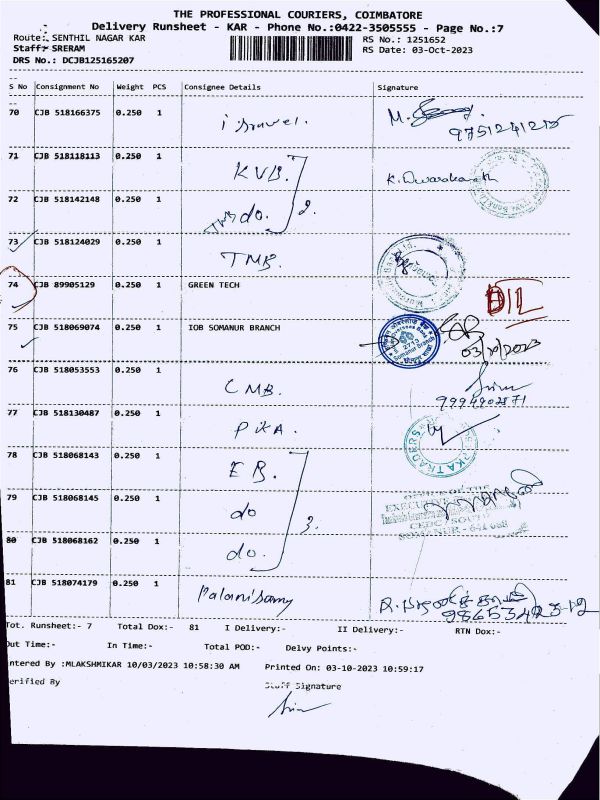 THE PROFESSIONAL COURIERS, COIMBATORE
Delivery Runsheet - KAR - Phone No.:0422-3505555 - Page No.:7
Route: SENTHIL NAGAR KAR
RS No.: 1251652
Staff: SRERAM
RS Date: 03-Oct-2023
DRS No.: DCJB125165207
S No Consignment No Weight PCS Consignee Details Signature
70 CJB 518166375 0.250 1
71 CJB 518118113 0.250 1 KVB. K. Dwarakanath
72 CJB 518142148 0.250 1 do. 2.
73 CJB 518124029 0.250 1 TMB.
74 CJB 89905129 0.250 1 GREEN TECH
75 CJB 518069074 0.250 1 IOB SOMANUR BRANCH 03/10/2023
76 CJB 518053553 0.250 1 CMB.
77 CJB 518130487 0.250 1
78 CJB 518068143 0.250 1 EB.
79 CJB 518068145 0.250 1 do 3.
80 CJB 518068162 0.250 1 do.
81 CJB 518074179 0.250 1 Palanisamy
Tot. Runsheet:- 7 Total Dox:- 81 I Delivery:- II Delivery:- RTN Dox:-
Out Time:- In Time:- Total POD:- Delvy Points:-
ntered By :MLAKSHMIKAR 10/03/2023 10:58:30 AM Printed On: 03-10-2023 10:59:17
erified By Staff Signature